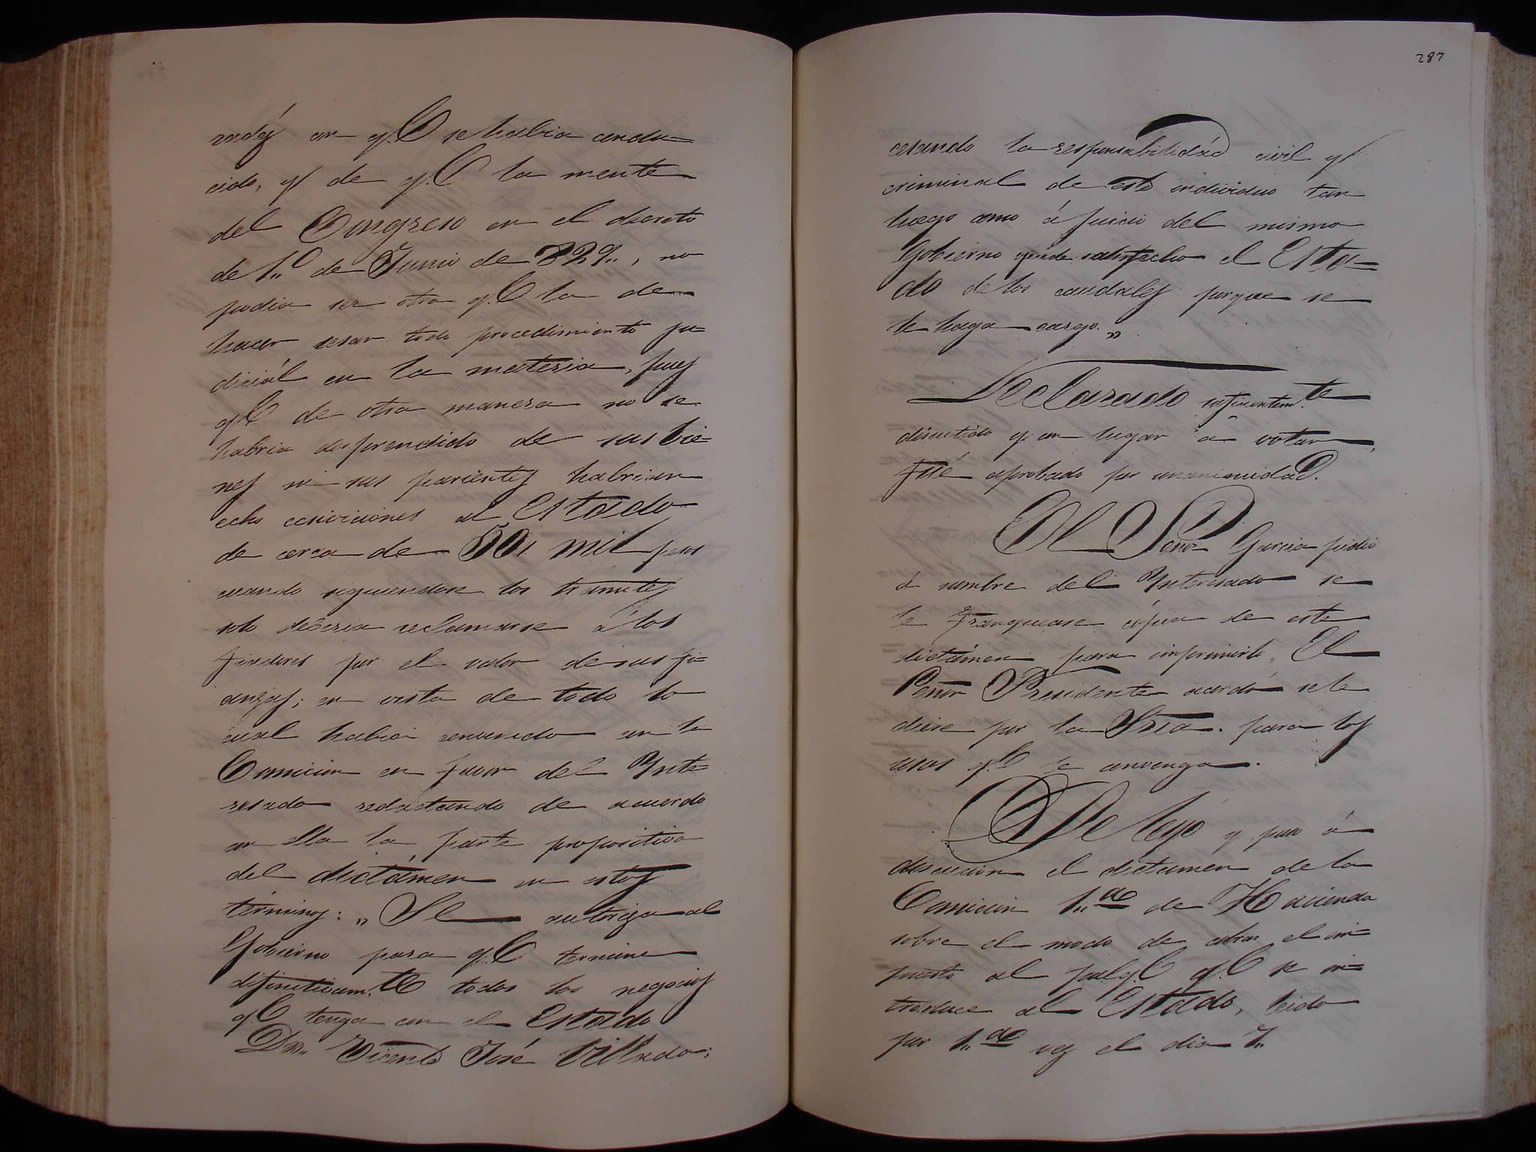 en q.e se habia condu=
cido, y de q.e la mente
del Congreso en el decreto
de 1.o de Junio de 829., no
podia ser otra q.e la de
hacer cesar todo procedimiento ju=
dicial en la materia, pues
q.e de otra manera no se
habria desprendido de sus bie=
nes ni sus parientes habrian
echo cesiones al Estado
de cerca de 50 mil pesos
cuando siguiendose los tramites
solo deberia reclamarse á los
fiadores por el valor de sus fi=
anzas; en vista de todo lo
cual habia convenido con la
Comicion en favor del Inte=
resado redactando de acuerdo
con ella la parte propositiva
del dictámen en estos
términos: „Se autoriza al
Gobierno para q.e termine
difinitivam.te todos los negocios
q.e tenga con el Estado
Dn. Vicente José Villada;
287
cesando la responsabilidád civil y
criminal de este individuo tan
luego como á juicio del mismo
Gobierno quede satisfecho el Esta=
do de los caudales porque se
le haga cargo.„
Declarado suficientem.te
discutido y en lugar á votar,
fué aprobado por unanimidad.
El Señor Garcia pidio
á nombre del Interesado se
le franquease copia de este
dictámen para imprimirlo. El
Señor Presidente acordó se le
diese por la Sría. para los
usos q.e le convenga.
Se leyó y puso á
discucion el dictamen de la
Comicion 1.a de Hacienda
sobre el modo de cobrar el im=
puesto al pulq.e q.e se in=
troduce al Estado, leido
por 1.a vez el dia 7.